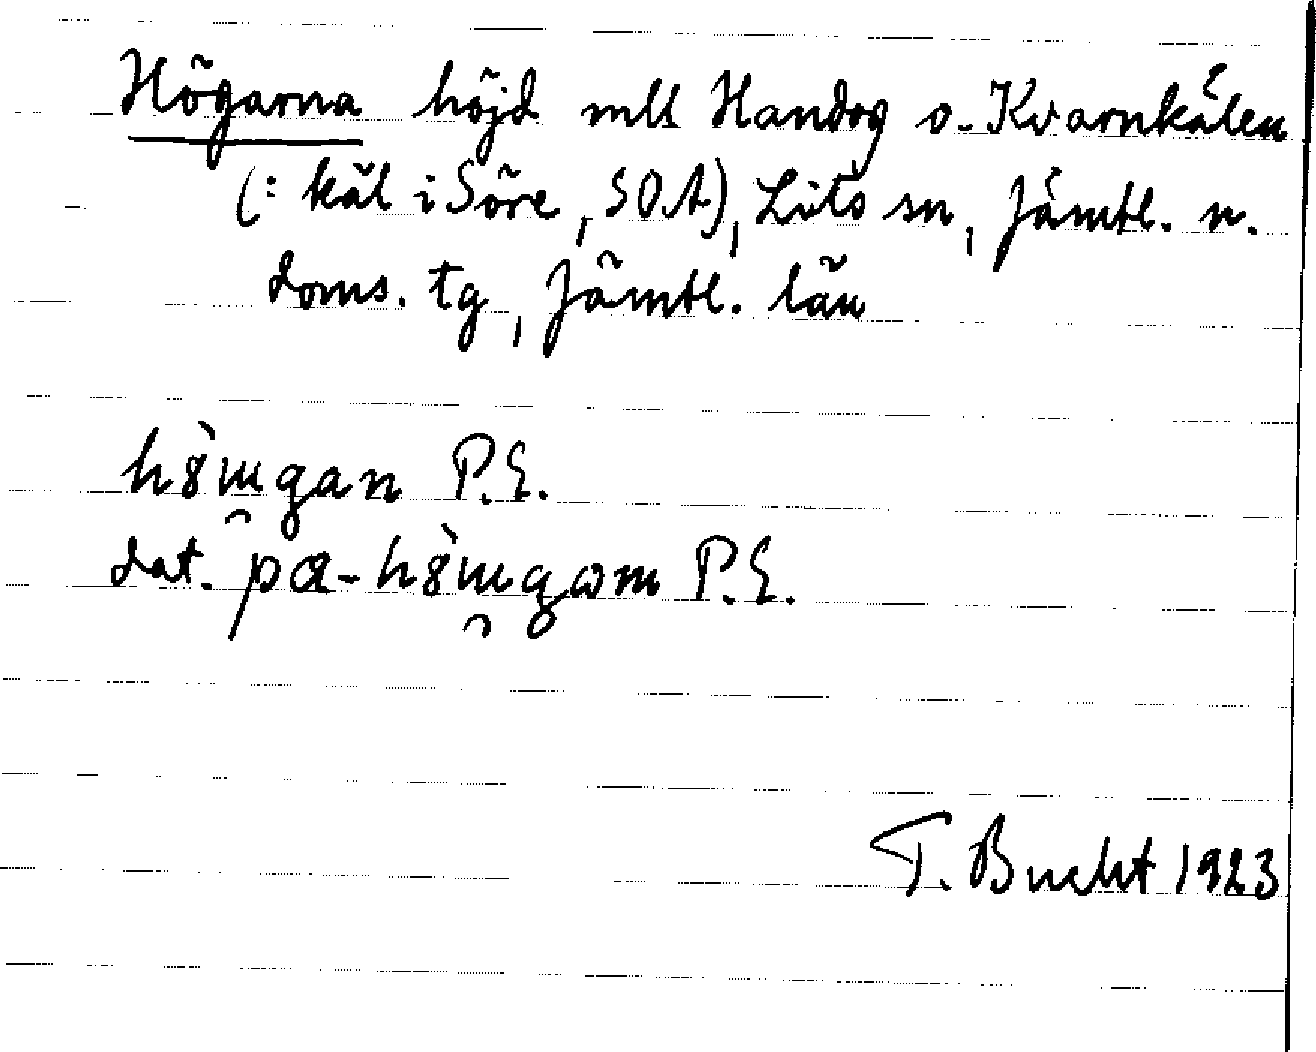 Högarna höjd mll Handog o. Kvarnkälen
(: käl i Söre, SOA), Lits sn, Jämtl. n.
doms. tg, Jämtl. län
dat. pa- P.E.
P.E.
T. Bucht 1923